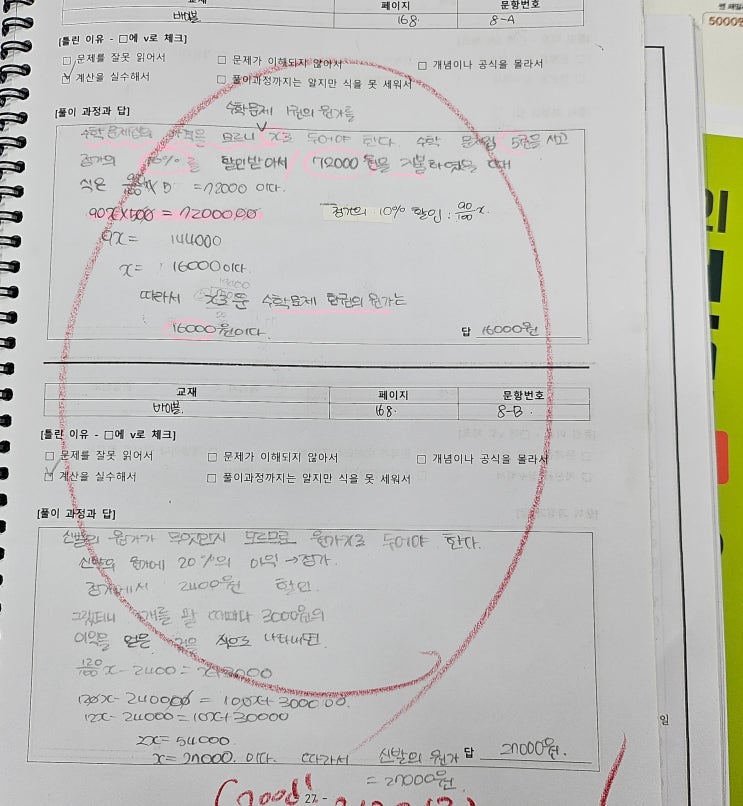 교재 페이지 문항번호
바이블 168. 8-A
[틀린 이유 - □에 v로 체크]
□ 문제를 잘못 읽어서 □ 문제가 이해되지 않아서 □ 개념이나 공식을 몰라서
□ 계산을 실수해서 □ 풀이과정까지는 알지만 식을 못 세워서
[풀이 과정과 답]
수학문제 1권의 원가를
수학문제집의 가격을 모르니 x로 두어야 한다. 수학 문제집 5권을 사고
정가의 10%를 할인받아서 72000원을 지불하였을 때
식은 90/100x × 5 = 72000 이다.
90x×500 = 7200000 정가의 10% 할인 : 90/100 x.
9x = 144000
x = 16000이다.
따라서 x로 둔 수학문제 한권의 원가는
16000원이다. 답 16000원
교재 페이지 문항번호
바이블. 168. 8-B.
[틀린 이유 - □에 v로 체크]
□ 문제를 잘못 읽어서 □ 문제가 이해되지 않아서 □ 개념이나 공식을 몰라서
□ 계산을 실수해서 □ 풀이과정까지는 알지만 식을 못 세워서
[풀이 과정과 답]
신발의 원가가 무엇인지 모르므로 원가 x로 두어야 한다.
신발의 원가에 20%의 이익 → 정가.
정가에서 2400원 할인.
그랬더니 1개를 팔 때마다 3000원의
이익을 얻은 것을 식으로 나타내면
120/100x - 2400 = x+3000
120x - 240000 = 100x+300000.
12x - 24000 = 10x+30000
2x = 54000.
x = 27000. 이다. 따라서 신발의 원가 답 27000원.
= 27000원.
Good!
27 -
5000원
일